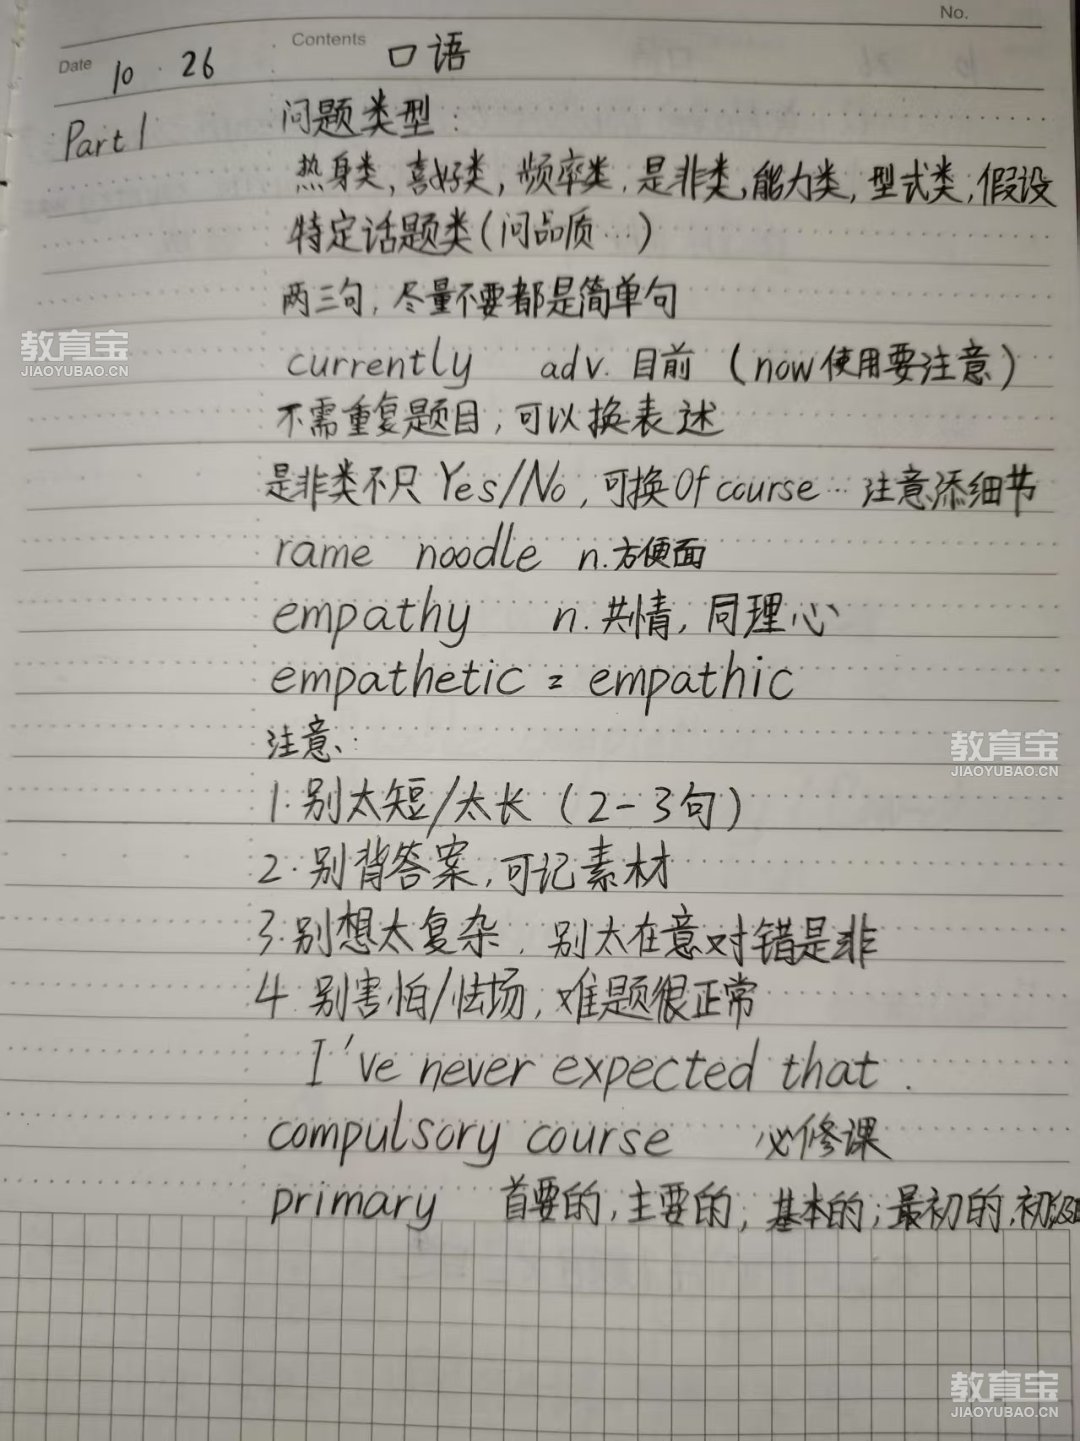 No.
Date 10 · 26 Contents 口语
Part 1 问题类型:
热身类,喜好类,频率类,是非类,能力类,型式类,假设
特定话题类(问品质…)
两三句,尽量不要都是简单句
currently adv. 目前 (now使用要注意)
不需重复题目,可以换表述
是非类不只 Yes/No,可换Of course… 注意添细节
rame noodle n.方便面
empathy n.共情,同理心
empathetic = empathic
注意:
1.别太短/太长(2-3句)
2.别背答案,可记素材
3.别想太复杂,别太在意对错是非
4.别害怕/怯场,难题很正常
I've never expected that.
compulsory course 必修课
primary 首要的,主要的;基本的;最初的,初级
教育宝
JIAOYUBAO.CN
教育宝
JIAOYUBAO.CN
教育宝
JIAOYUBAO.CN